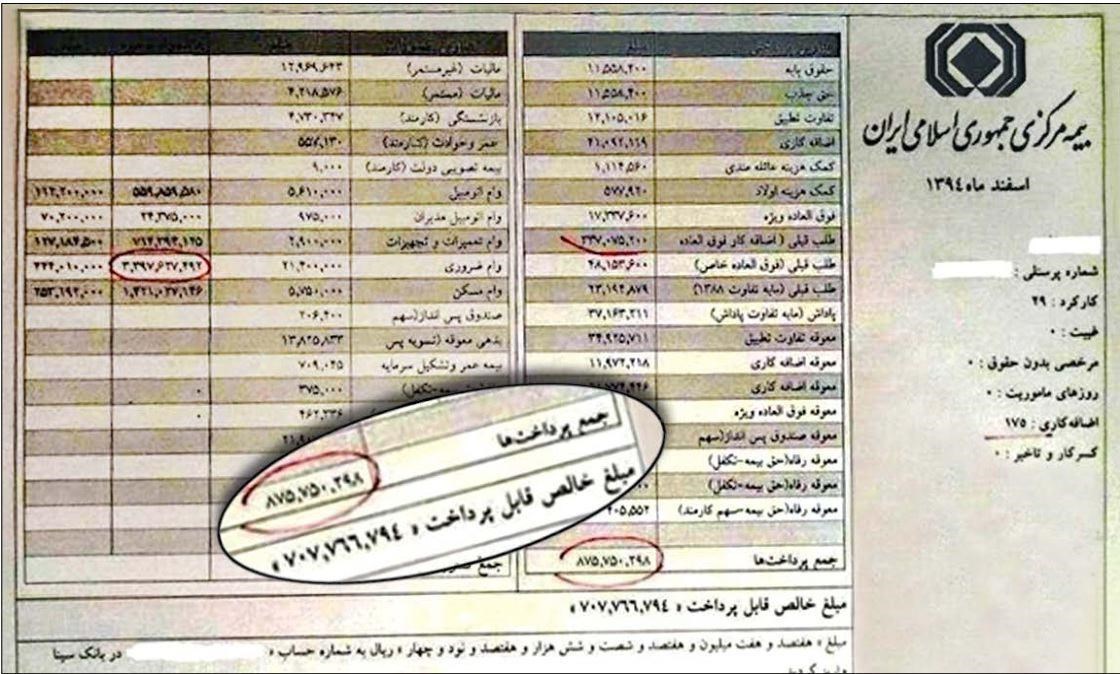 بیمه مرکزی جمهوری اسلامی ایران
اسفند ماه ۱۳۹۴
شماره پرسنلی :
کارکرد : ۲۹
غیبت : ۰
مرخصی بدون حقوق : ۰
روزهای ماموریت : ۰
اضافه‌کاری : ۱۷۵
کسرکار و تاخیر : ۰
مبلغ
حقوق پایه ۱۱,۵۵۸,۴۰۰
حق جذب ۱۱,۵۵۸,۴۰۰
تفاوت تطبیق ۱۲,۱۰۵,۰۱۶
اضافه کاری ۲۱,۰۹۲,۱۱۹
کمک هزینه عائله مندی ۱,۱۱۴,۵۶۰
کمک هزینه اولاد ۵۷۷,۹۲۰
فوق العاده ویژه ۱۷,۳۳۷,۶۰۰
طلب قبلی ( اضافه کار فوق العاده ۳۳۷,۰۷۵,۲۰۰
طلب قبلی (فوق العاده خاص) ۴۸,۱۵۳,۶۰۰
طلب قبلی (مابه تفاوت ۱۳۸۸) ۲۳,۱۹۴,۸۷۹
پاداش (مابه تفاوت پاداش) ۳۷,۱۶۳,۲۱۱
معوقه تفاوت تطبیق ۳۴,۹۲۵,۷۱۱
معوقه اضافه کاری ۱۱,۹۷۲,۲۱۸
معوقه اضافه کاری
معوقه فوق العاده ویژه
معوقه صندوق پس انداز(سهم
معوقه رفاه(حق بیمه-تکفل)
معوقه رفاه(حق بیمه-تکفل)
معوقه رفاه(حق بیمه-سهم کارمند)
جمع پرداخت‌ها ۸۷۵,۷۵۰,۲۹۸
مبلغ
مالیات (غیرمستمر) ۱۲,۹۶۹,۶۴۳
مالیات (مستمر) ۴,۲۱۸,۵۷۶
بازنشستگی (کارمند) ۴,۷۳۰,۳۲۷
عمر و حوادث (کارمند) ۵۵۷,۱۳۰
بیمه تصویبی دولت (کارمند) ۹,۰۰۰
وام اتومبیل ۵,۶۱۰,۰۰۰ ۵۵۹,۸۵۹,۵۸۰ ۱۱۲,۲۰۰,۰۰۰
وام اتومبیل مدیران ۹۷۵,۰۰۰ ۲۴,۳۷۵,۰۰۰ ۷۰,۲۰۰,۰۰۰
وام تعمیرات و تجهیزات ۲,۹۰۰,۰۰۰ ۷۱۴,۲۹۳,۱۲۵ ۱۲۷,۱۸۴,۵۰۰
وام ضروری ۲۱,۴۰۰,۰۰۰ ۳,۳۹۷,۶۳۷,۴۹۲ ۳۴۴,۰۱۰,۰۰۰
وام مسکن ۵,۷۵۰,۰۰۰ ۱,۴۲۱,۰۳۷,۱۴۶ ۲۵۳,۱۹۲,۰۰۰
صندوق پس انداز(سهم ۲۰۶,۴۰۰
بدهی معوقه (تسویه پس ۱۳,۸۲۵,۸۳۳
بیمه عمر وتشکیل سرمایه ۷۰۹,۰۴۵
۳۷۵,۰۰۰ ۰
۴۶۲,۳۳۶ ۰
جمع پرداخت‌ها
۸۷۵,۷۵۰,۲۹۸
مبلغ خالص قابل پرداخت « ۷۰۷,۷۶۶,۷۹۴ »
مبلغ خالص قابل پرداخت « ۷۰۷,۷۶۶,۷۹۴ »
مبلغ « هفتصد و هفت میلیون و هفتصد و شصت و شش هزار و هفتصد و نود و چهار » ریال به شماره حساب « در بانک سینا